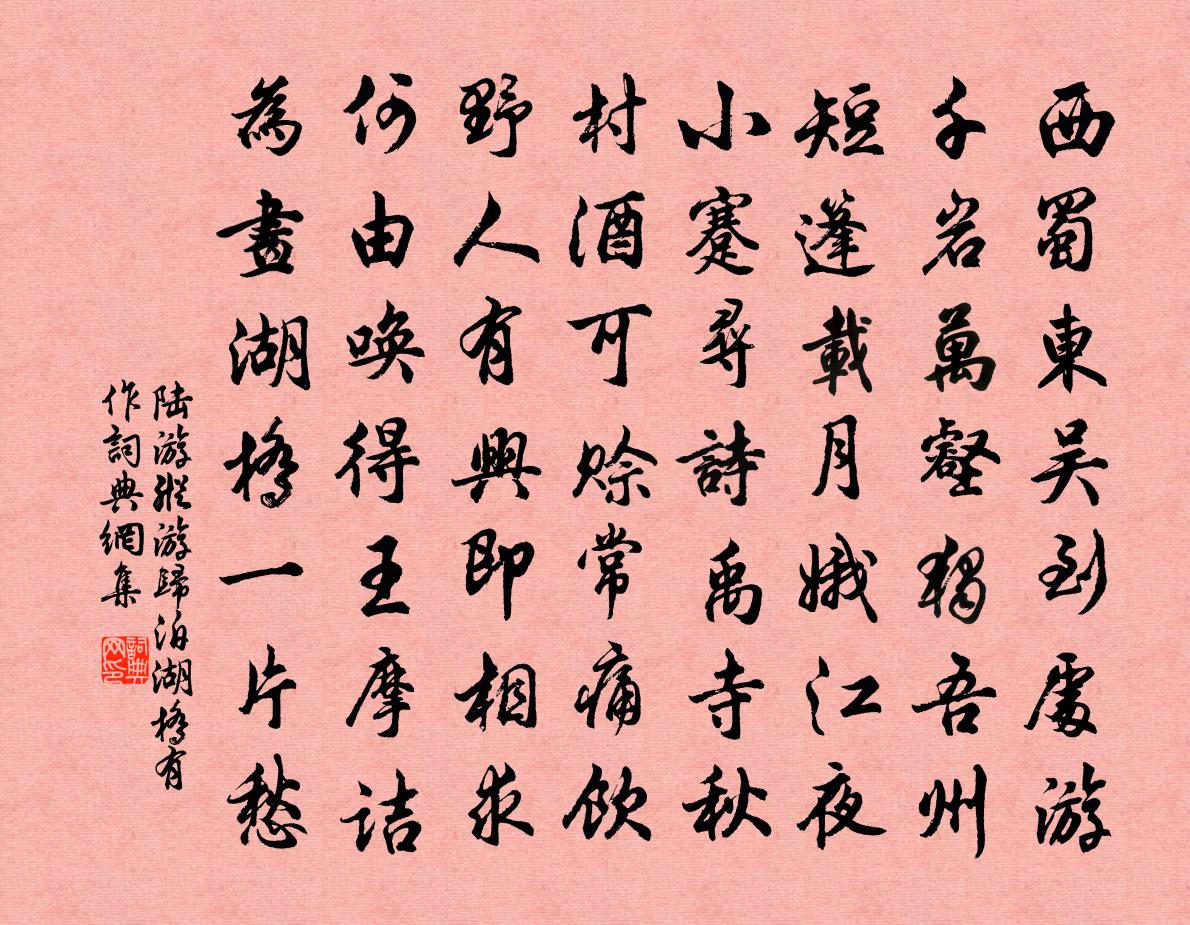 西蜀東吴到處游
千岩萬壑獨吾州
短蓬載月娥江夜
小蹇尋詩禹寺秋
村酒可賒常痛飲
野人有興即相求
何由喚得王摩詰
為畫湖橋一片愁
陆游縱游歸泊湖橋有
作詞典網集
詞典网印